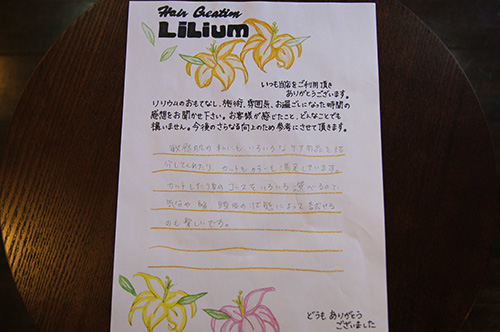 Hair Creation
LiLium
いつも当店をご利用頂き
ありがとうございます。
リリウムのおもてなし、施術、雰囲気、お過ごしになった時間の
感想をお聞かせ下さい。お客様が感じたこと、どんなことでも
構いません。今後のさらなる向上のため参考にさせて頂きます。
敏感肌の私にもいろいろなケア用品を紹
介してくれたり、カットもカラーも満足しています。
カットした後のコースをいろいろ選べるので
気分や髪、頭皮の状態によって試せる
のも楽しいです。
どうもありがとう
ございました